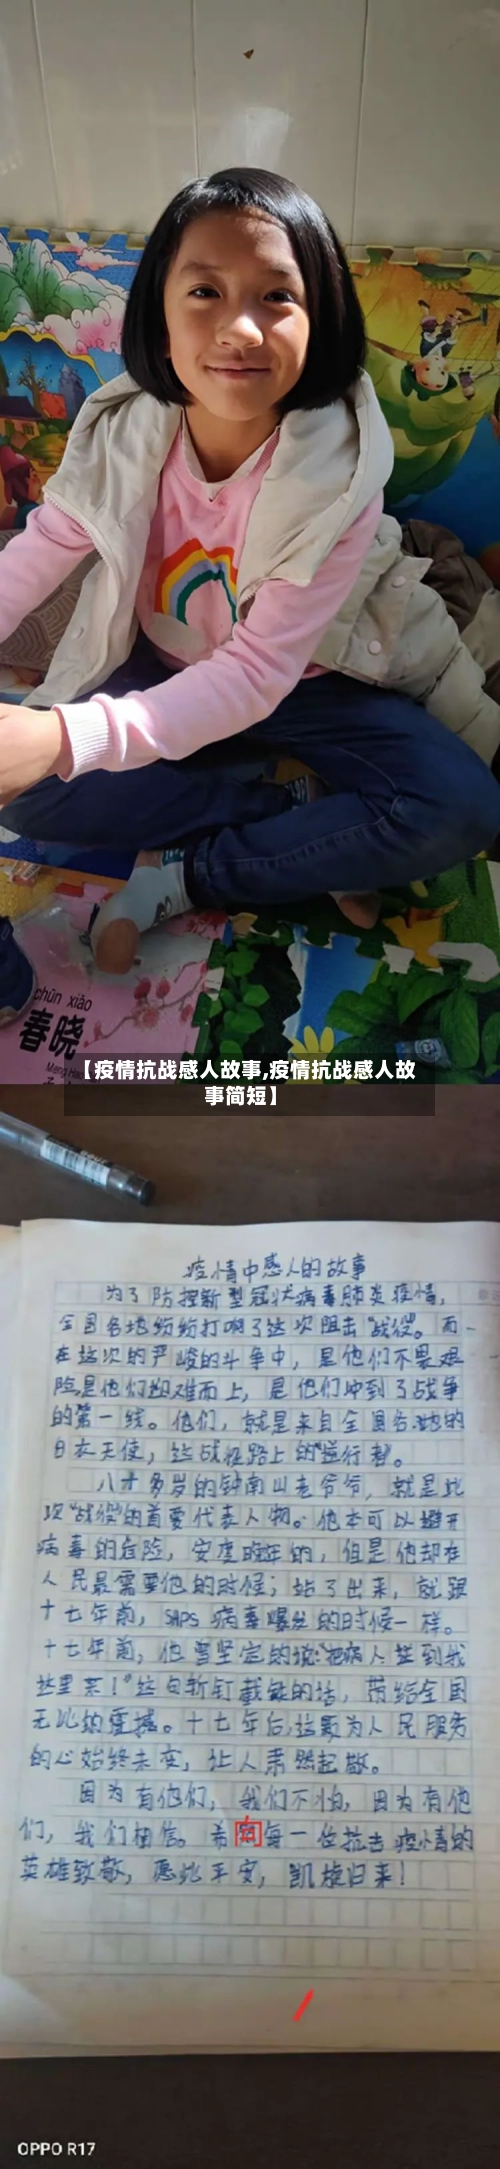 chūn xiáo
春晓
Meng Hao
【疫情抗战感人故事,疫情抗战感人故
事简短】
疫情中感人的故事
为了防控新型冠状病毒肺炎疫情,
全国各地纷纷打响了这次阻击“战役”。而
在这次的严峻的斗争中,是他们不畏艰
险,是他们迎难而上,是他们冲到了战争
的第一线。他们,就是来自全国各地的
白衣天使,这战役路上的“逆行者”。
八十多岁的钟南山老爷爷,就是此
次“战役”的首要代表人物。他本可以避开
病毒的危险,安度晚年的,但是他却在
人民最需要他的时候;站了出来,就跟
十七年前,SAPS病毒爆发的时候一样。
十七年前,他曾坚定的说:“把病人送到我
这里来!”这句斩钉截铁的话,带给全国
无比的震撼。十七年后,这颗为人民服务
的心始终未变,让人肃然起敬。
因为有他们,我们不怕,因为有他
们,我们相信。希向每一位抗击疫情的
英雄致敬,愿此平安,凯旋归来!
OPPO R17